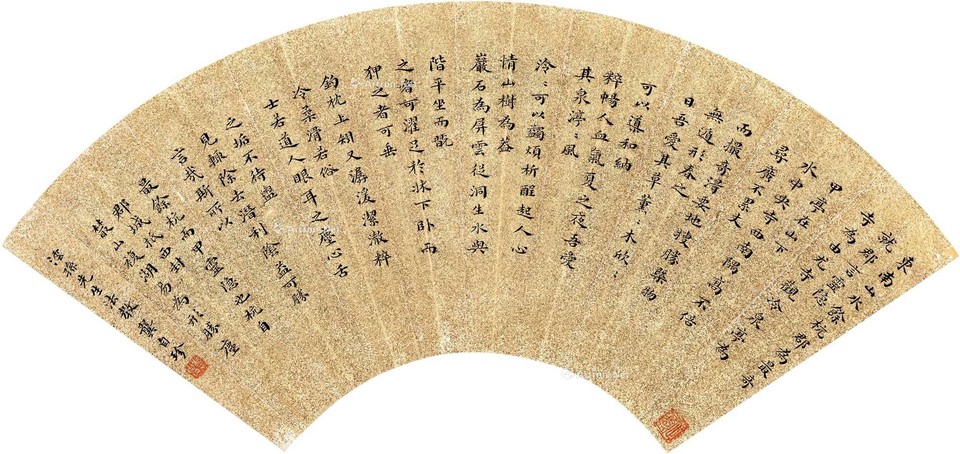 東南山水餘杭郡為最奇
就郡言靈隱
寺為尤由寺觀冷泉亭為
甲亭在山下
水中央寺西南隅高不倍
尋廣不累丈
而撮奇得要地搜勝槩物
無遁形春之
日吾愛其草薰〻木欣〻
可以導和納
粹暢人血氣夏之夜吾愛
其泉渟〻風
泠〻可以蠲煩析酲起人心
情山樹為蓋
巖石為屏雲從洞生水與
階平坐而翫
之者可濯足於牀下卧而
狎之者可垂
釣枕上矧又潺湲潔澈粹
冷柔滑若俗
士若道人眼耳之塵心舌
之垢不待盥
見輒除去潛利陰益可勝
言哉斯所以
最餘杭而甲靈隱也杭自
郡城抵四封
叢山複湖易為形勝
先生法教龔自珍